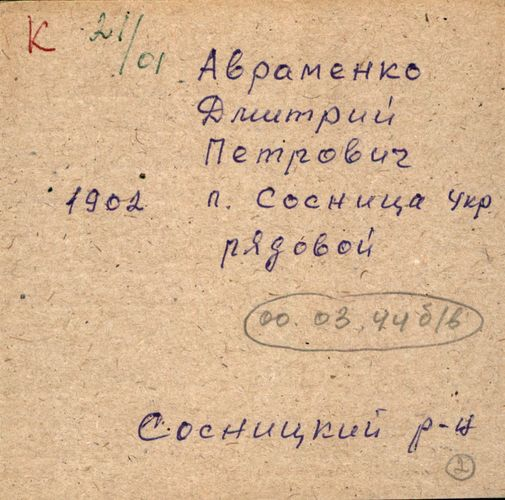 К 21/01
Авраменко
Дмитрий
Петрович
1902 п. Сосница Укр
рядовой
00.03.44 б/в
Сосницкий р-н
1